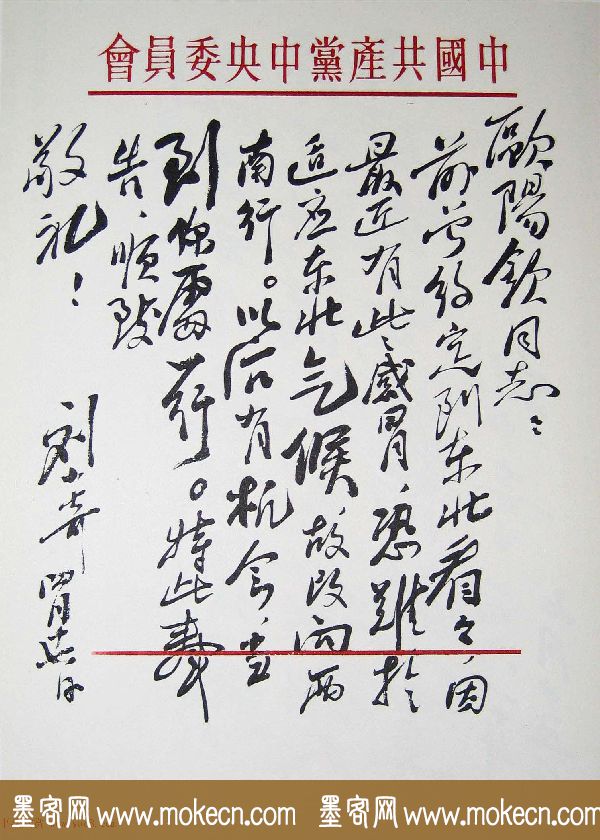 中國共產黨中央委員會
歐陽欽同志:
前曾约定到东北看々,因
最近有些感冒,恐难於
适应东北气候,故改向西
南行。以后有机会,当
到你處一行。特此奉
告,順致
敬礼!
刘少奇 四月
墨客网 www.mokecn.com 墨客网 www.mokecn.com